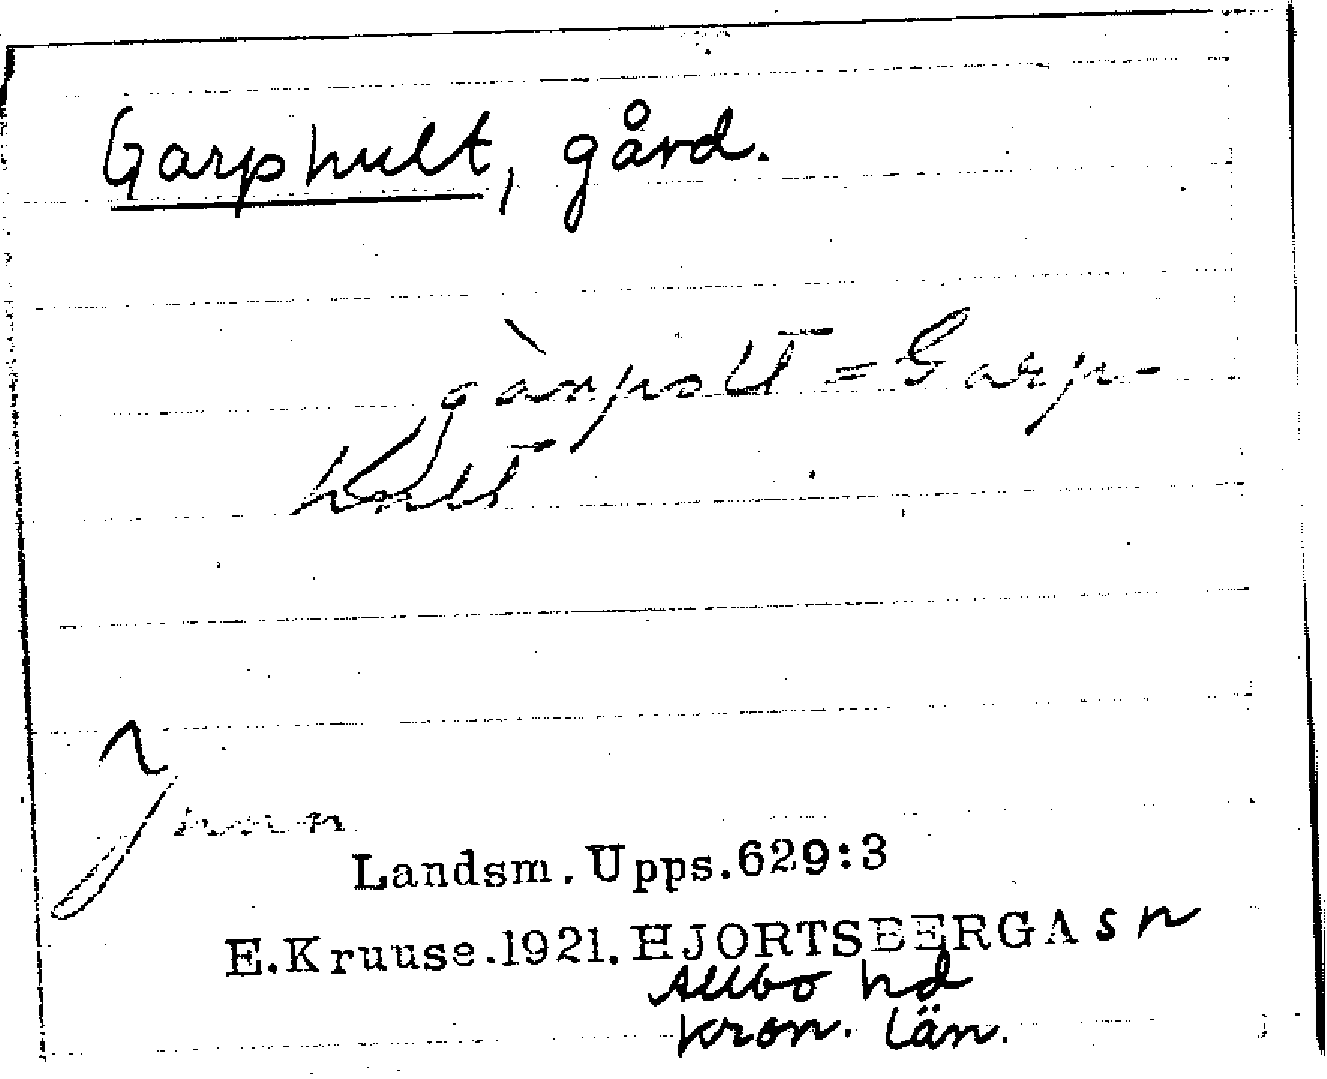 Garphult, gård.
gàrpolt = Garp-
hult
Landsm. Upps. 629:3
E. Kruuse. 1921. HJORTSBERGA sn
Allbo hd
Kron. län.